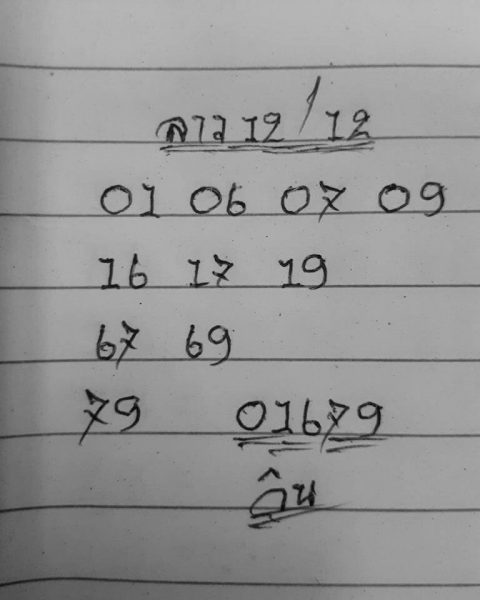 ลาว 12/12
01 06 07 09
16 17 19
67 69
79 01679